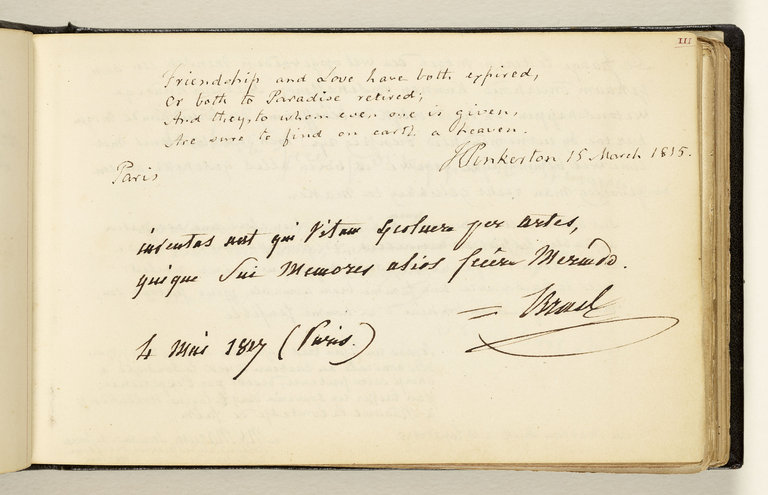 111
Friendship and Love have both expired,
Or both to Paradise retired;
And they, to whom even one is given,
Are sure to find on earth a heaven.
J Pinkerton 15 March 1815.
Paris
inventas aut qui Vitam Excoluere per artes,
quique Sui Memores alios fecere Merendo.
4 Mai 1817 (Paris.)